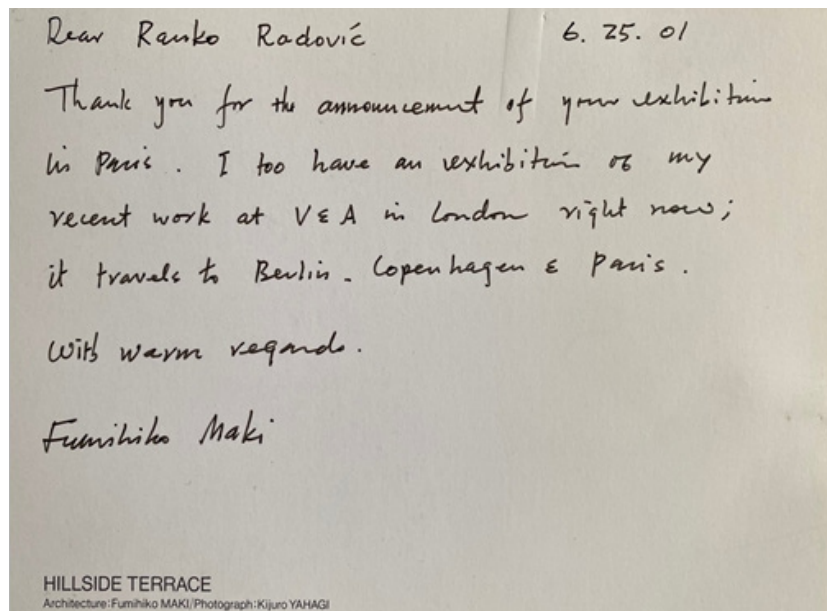 Dear Ranko Radović 6. 25. 01
Thank you for the announcement of your exhibition
in Paris. I too have an exhibition of my
recent work at V & A in London right now;
it travels to Berlin. Copenhagen & Paris.
With warm regards.
Fumihiko Maki
HILLSIDE TERRACE
Architecture:Fumihiko MAKI/Photograph:Kijuro YAHAGI